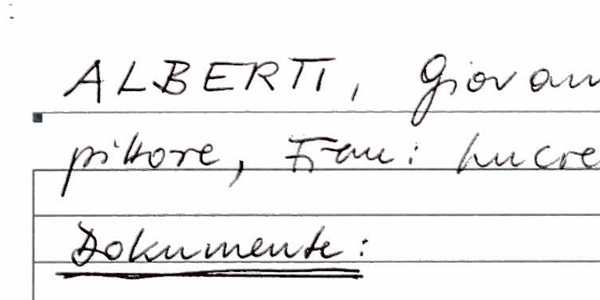 ALBERTI, Giovan
pittore, Frau: Lucre
Dokumente: